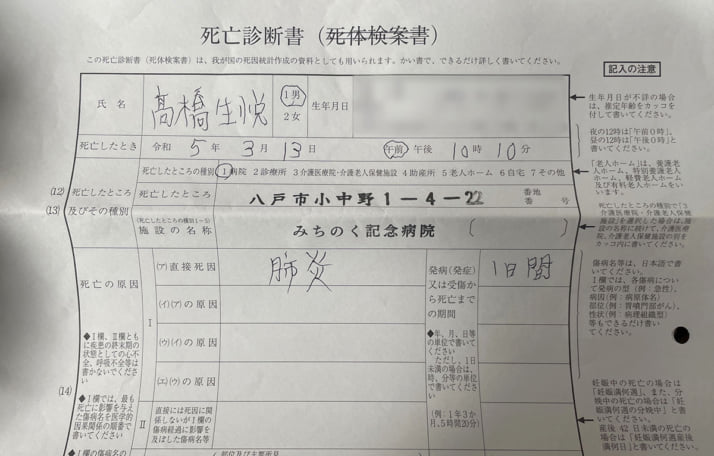 死亡診断書（死体検案書）
この死亡診断書（死体検案書）は、我が国の死因統計作成の資料としても用いられます。かい書で、できるだけ詳しく書いてください。
記入の注意
氏 名
髙橋生悦
1男
2女
生年月日
生年月日が不詳の場合
は、推定年齢をカッコを
付して書いてください。
死亡したとき
令和 5 年 3 月 13 日 午前 午後 10 時 10 分
夜の12時は「午前0時」、
昼の12時は「午後0時」と
書いてください。
(12)
(13)
死亡したところ
及びその種別
死亡したところの種別 1病院 2診療所 3介護医療院・介護老人保健施設 4助産所 5老人ホーム 6自宅 7その他
「老人ホーム」は、養護老
人ホーム、特別養護老人
ホーム、軽費老人ホーム
及び有料老人ホームをい
います。
死亡したところ
八戸市小中野1-4-22
番地
番 号
(死亡したところの種別1~5)
施設の名称
みちのく記念病院 ( )
死亡したところの種別で「3
介護医療院・介護老人保健
施設」を選択した場合は、施
設の名称に続けて、介護医療
院、介護老人保健施設の別を
カッコ内に書いてください。
死亡の原因
◆Ⅰ欄、Ⅱ欄とも
に疾患の終末期の
状態としての心不
全、呼吸不全等は
書かないでくださ
い
(14)
◆Ⅰ欄では、最も
死亡に影響を与え
た傷病名を医学的
因果関係の順番で
書いてください
◆Ⅰ欄の傷病名の
Ⅰ
(ア)直接死因
肺炎
(イ)(ア)の原因
(ウ)(イ)の原因
(エ)(ウ)の原因
Ⅱ
直接には死因に関
係しないがⅠ欄の
傷病経過に影響を
及ぼした傷病名等
発病(発症)
又は受傷か
ら死亡まで
の期間
1日間
◆年、月、日等
の単位で書いて
ください
ただし、1日
未満の場合は、
時、分等の単位
で書いてくださ
い
(例：1年3か
月、5時間20分)
傷病名等は、日本語で書
いてください。
Ⅰ欄では、各傷病につい
て発病の型(例：急性)、
病因(例：病原体名)
部位(例：胃噴門部がん)、
性状(例：病理組織型)
等もできるだけ書いて
ください。
妊娠中の死亡の場合は
「妊娠満何週」、また、分
娩中の死亡の場合は「妊
娠満何週の分娩中」と書
いてください。
産後42日未満の死亡
の場合は「妊娠満何週産後
満何日」と書いてください。
部位及び主要所見